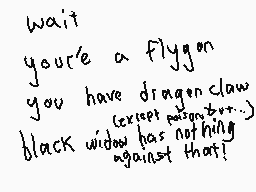 wait
your'e a flygon
you have dragon claw
(except poison but...)
black widow has nothing
against that!